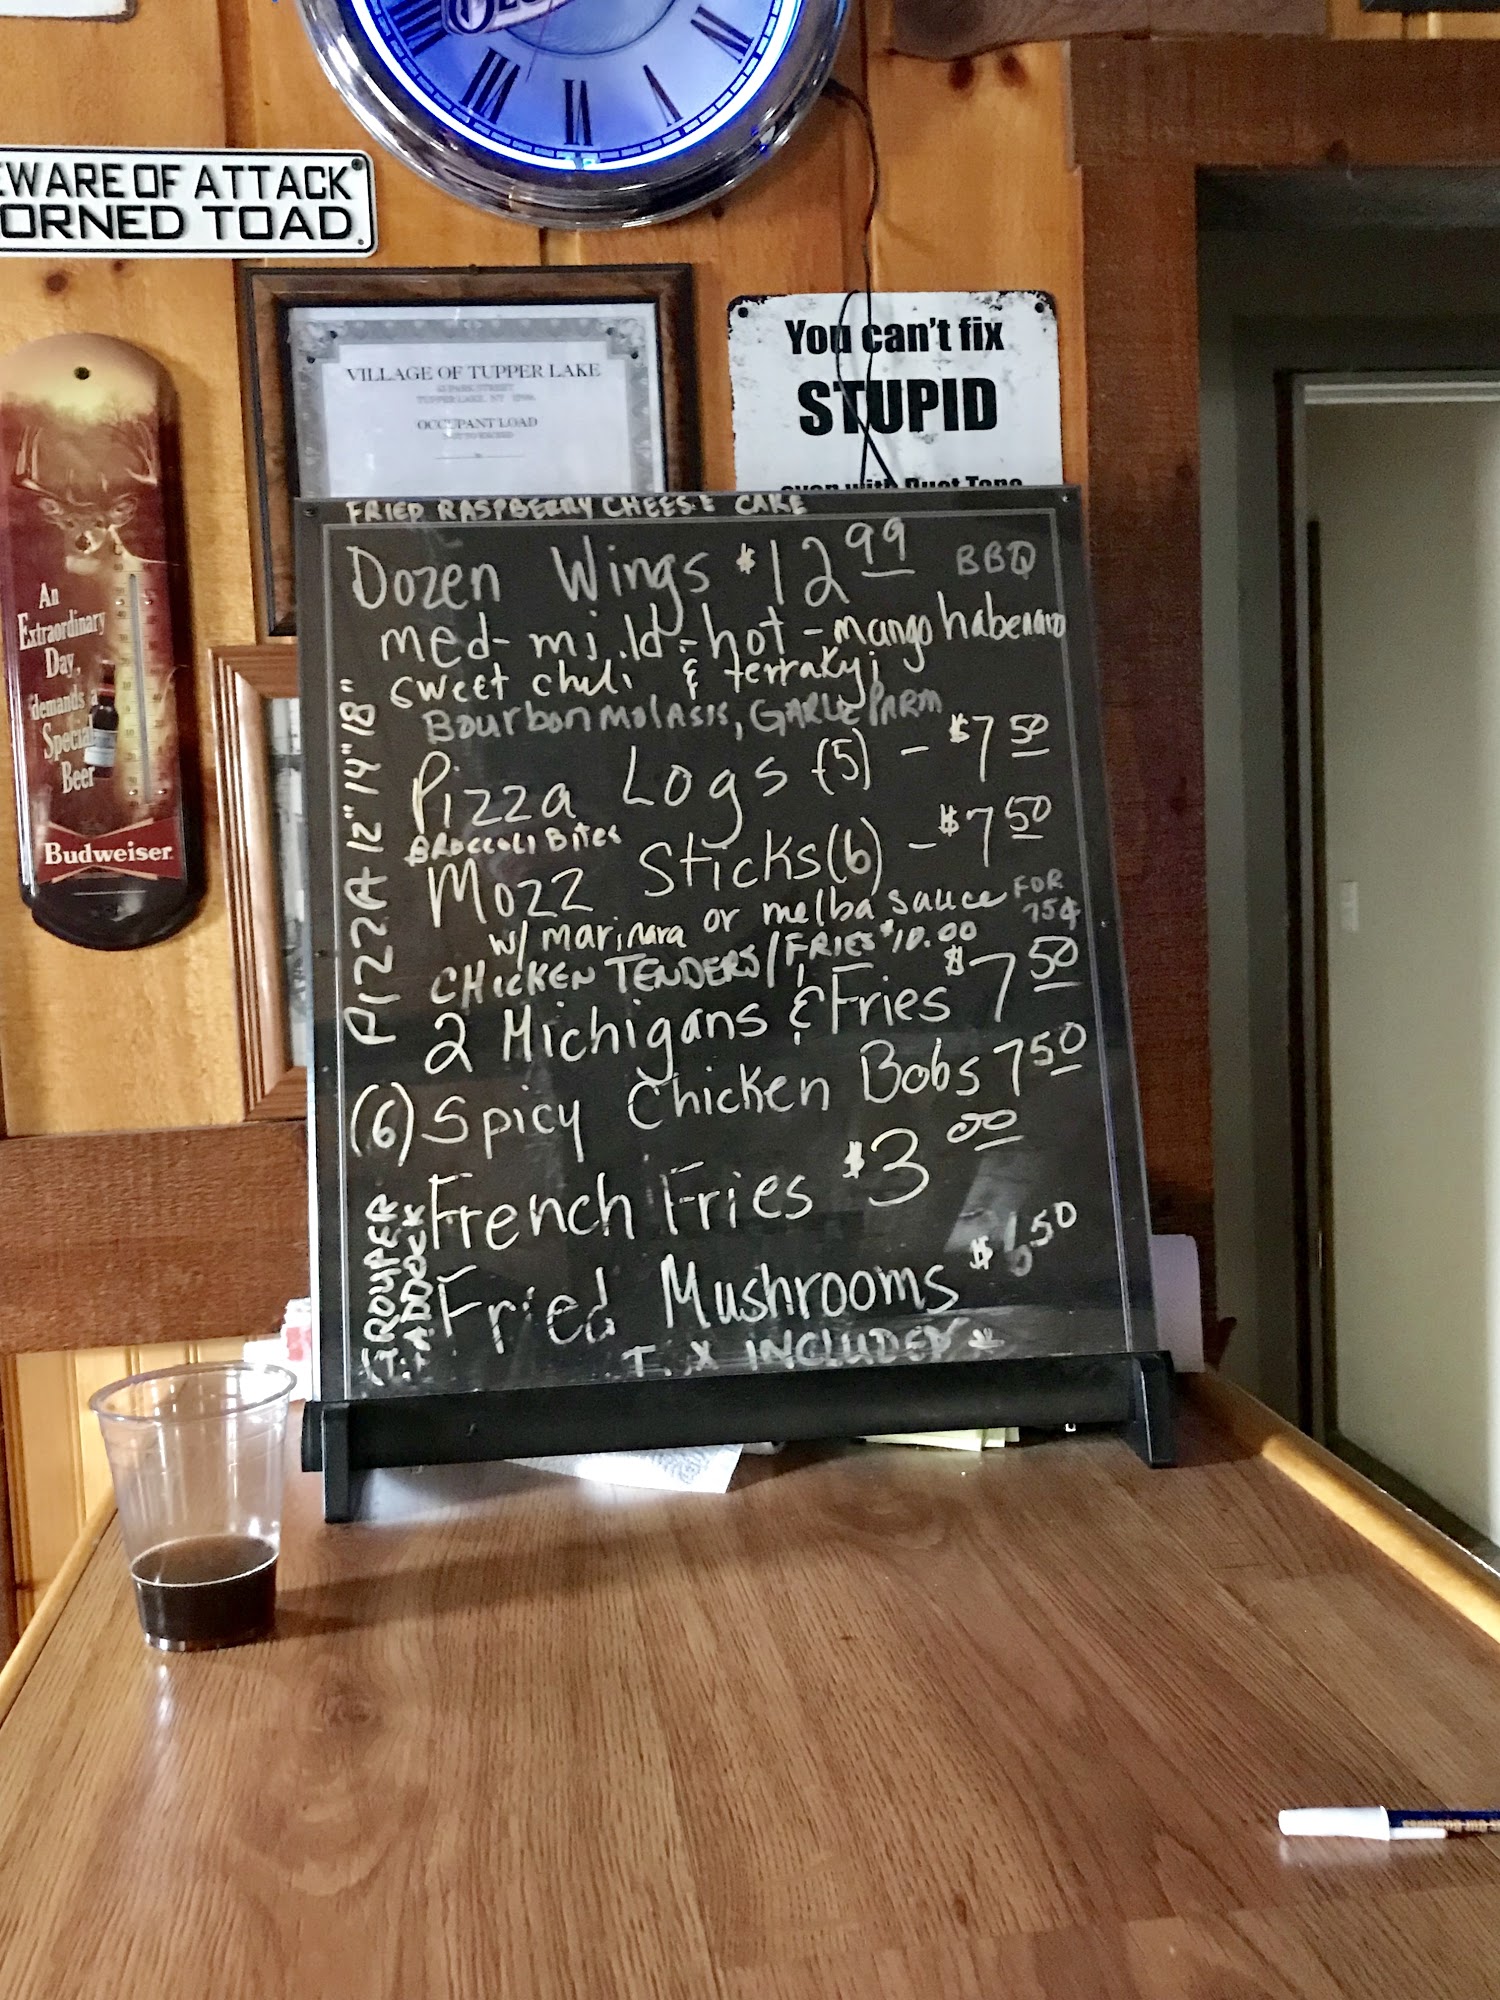 EWARE OF ATTACK
ORNED TOAD
VILLAGE OF TUPPER LAKE
TUPPER LAKE, NY
OCCUPANT LOAD
NOT TO EXCEED
You can't fix
STUPID
even with Duct Tape
An
Extraordinary
Day,
demands a
Special
Beer
Budweiser
FRIED RASPBERRY CHEESE CAKE
Dozen Wings $12.99 BBQ
med- mild - hot - mango habenaro
sweet chili & terrakyi
Bourbon molasis, GARLIC PARM
Pizza Logs (5) - $7.50
BROCCOLI BITES
Mozz Sticks (6) - $7.50
w/ marinara or melba sauce FOR 75¢
CHICKEN TENDERS/FRIES $10.00
2 Michigans & Fries $7.50
(6) Spicy Chicken Bobs 7.50
French Fries $3.00
Fried Mushrooms $6.50
T X INCLUDED *
PIZZA 12" 14" 18"
GROUPER
HADDOCK